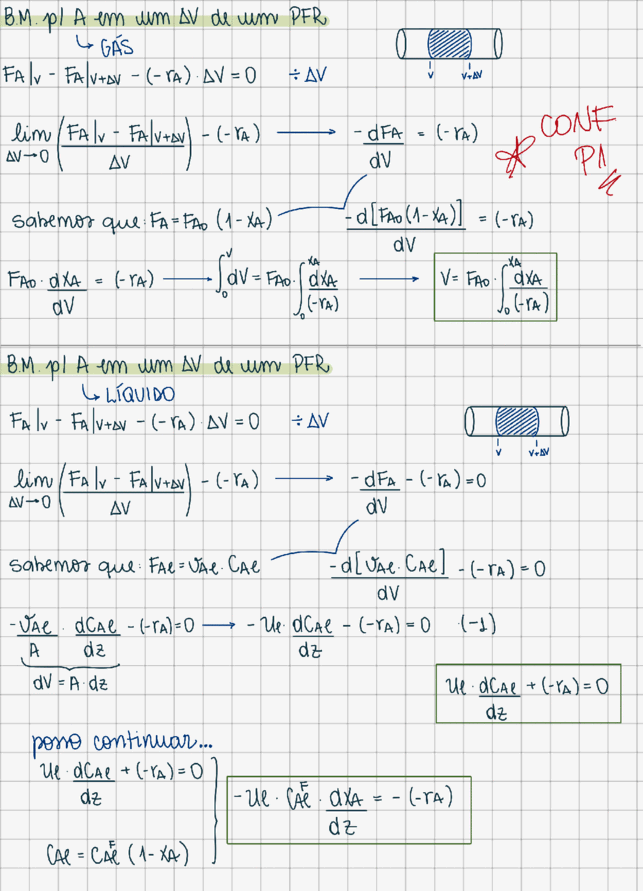 B.M. p/ A em um ΔV de um PFR
↳ GÁS
V V+ΔV
FA|V - FA|V+ΔV - (-rA) · ΔV = 0 ÷ ΔV
lim ΔV→0 (FA|V - FA|V+ΔV / ΔV) - (-rA) → -dFA/dV = (-rA)
* CONF
P1
sabemos que: FA = FA0 (1-XA) -d[FA0(1-XA)]/dV = (-rA)
FA0 · dXA/dV = (-rA) → ∫₀^V dV = FA0 · ∫₀^XA dXA/(-rA) → V = FA0 · ∫₀^XA dXA/(-rA)
B.M. p/ A em um ΔV de um PFR
↳ LÍQUIDO
FA|V - FA|V+ΔV - (-rA) · ΔV = 0 ÷ ΔV
V V+ΔV
lim ΔV→0 (FA|V - FA|V+ΔV / ΔV) - (-rA) → -dFA/dV - (-rA) = 0
sabemos que: FAl = vAl · CAl -d[vAl · CAl]/dV - (-rA) = 0
-vAl/A · dCAl/dz - (-rA) = 0 → -Ul · dCAl/dz - (-rA) = 0 · (-1)
dV = A · dz
Ul · dCAl/dz + (-rA) = 0
posso continuar...
Ul · dCAl/dz + (-rA) = 0
-Ul · CAl^F · dXA/dz = -(-rA)
CAl = CAl^F (1-XA)